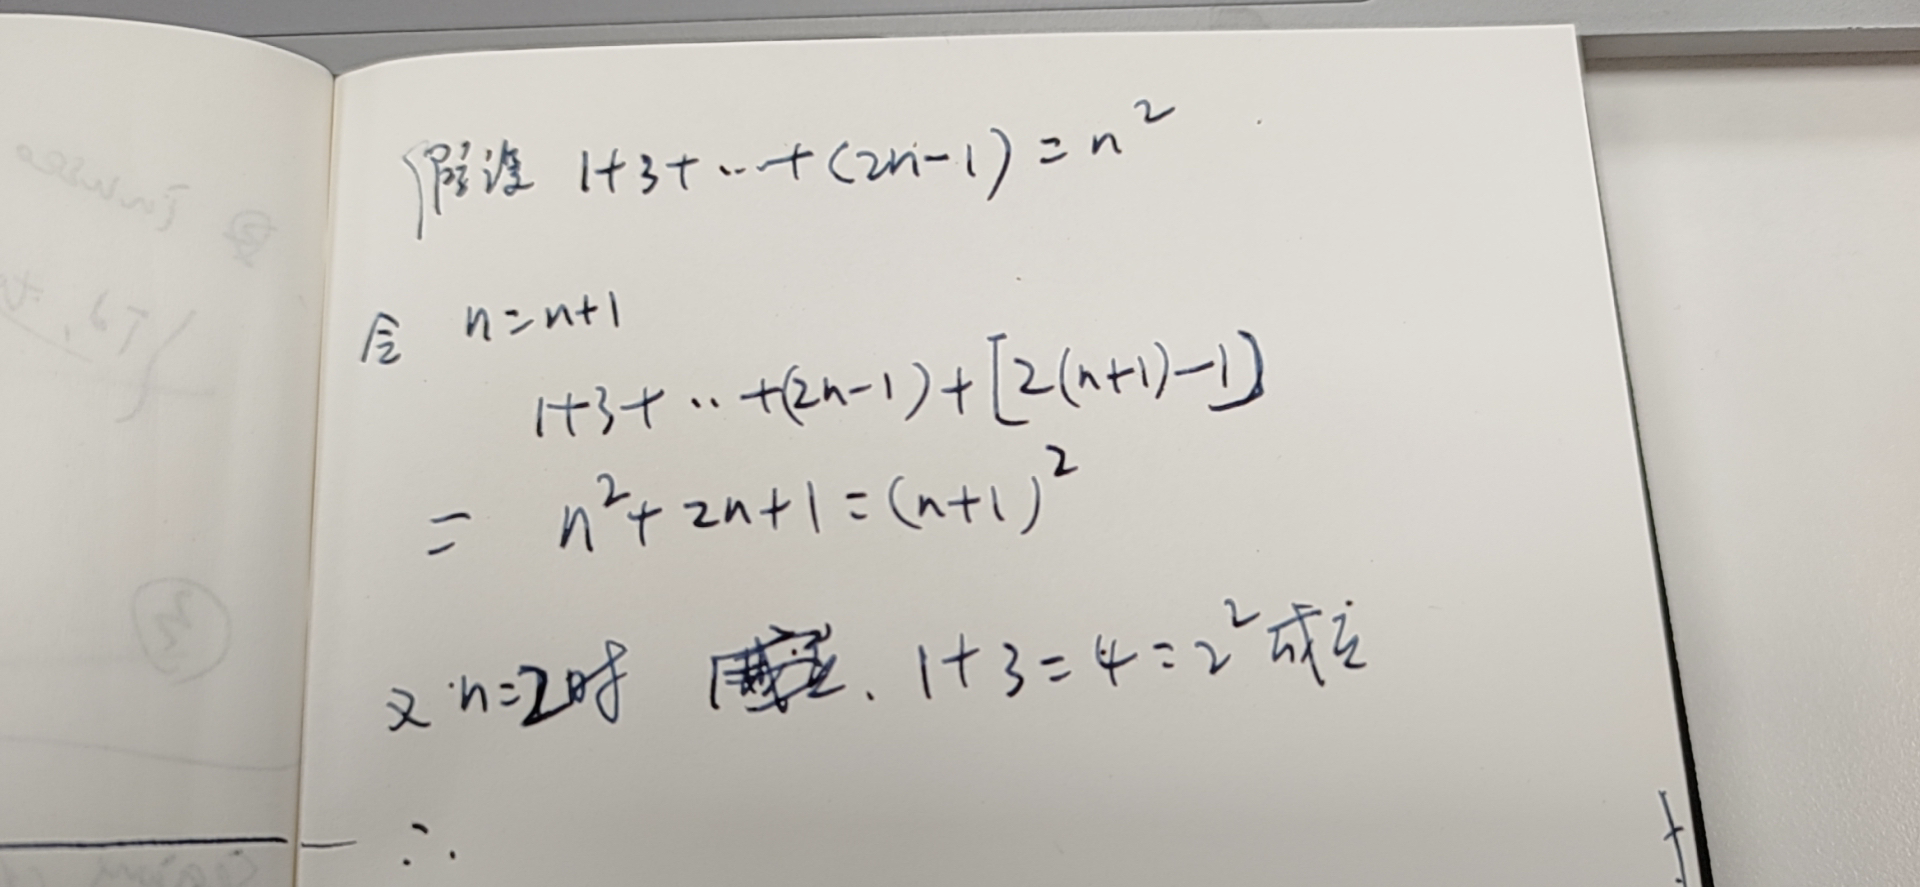 假设 1+3+…+(2n-1)=n²
令 n=n+1
1+3+…+(2n-1)+[2(n+1)-1]
= n²+2n+1=(n+1)²
又 n=2时 . 1+3=4=2² 成立
∴